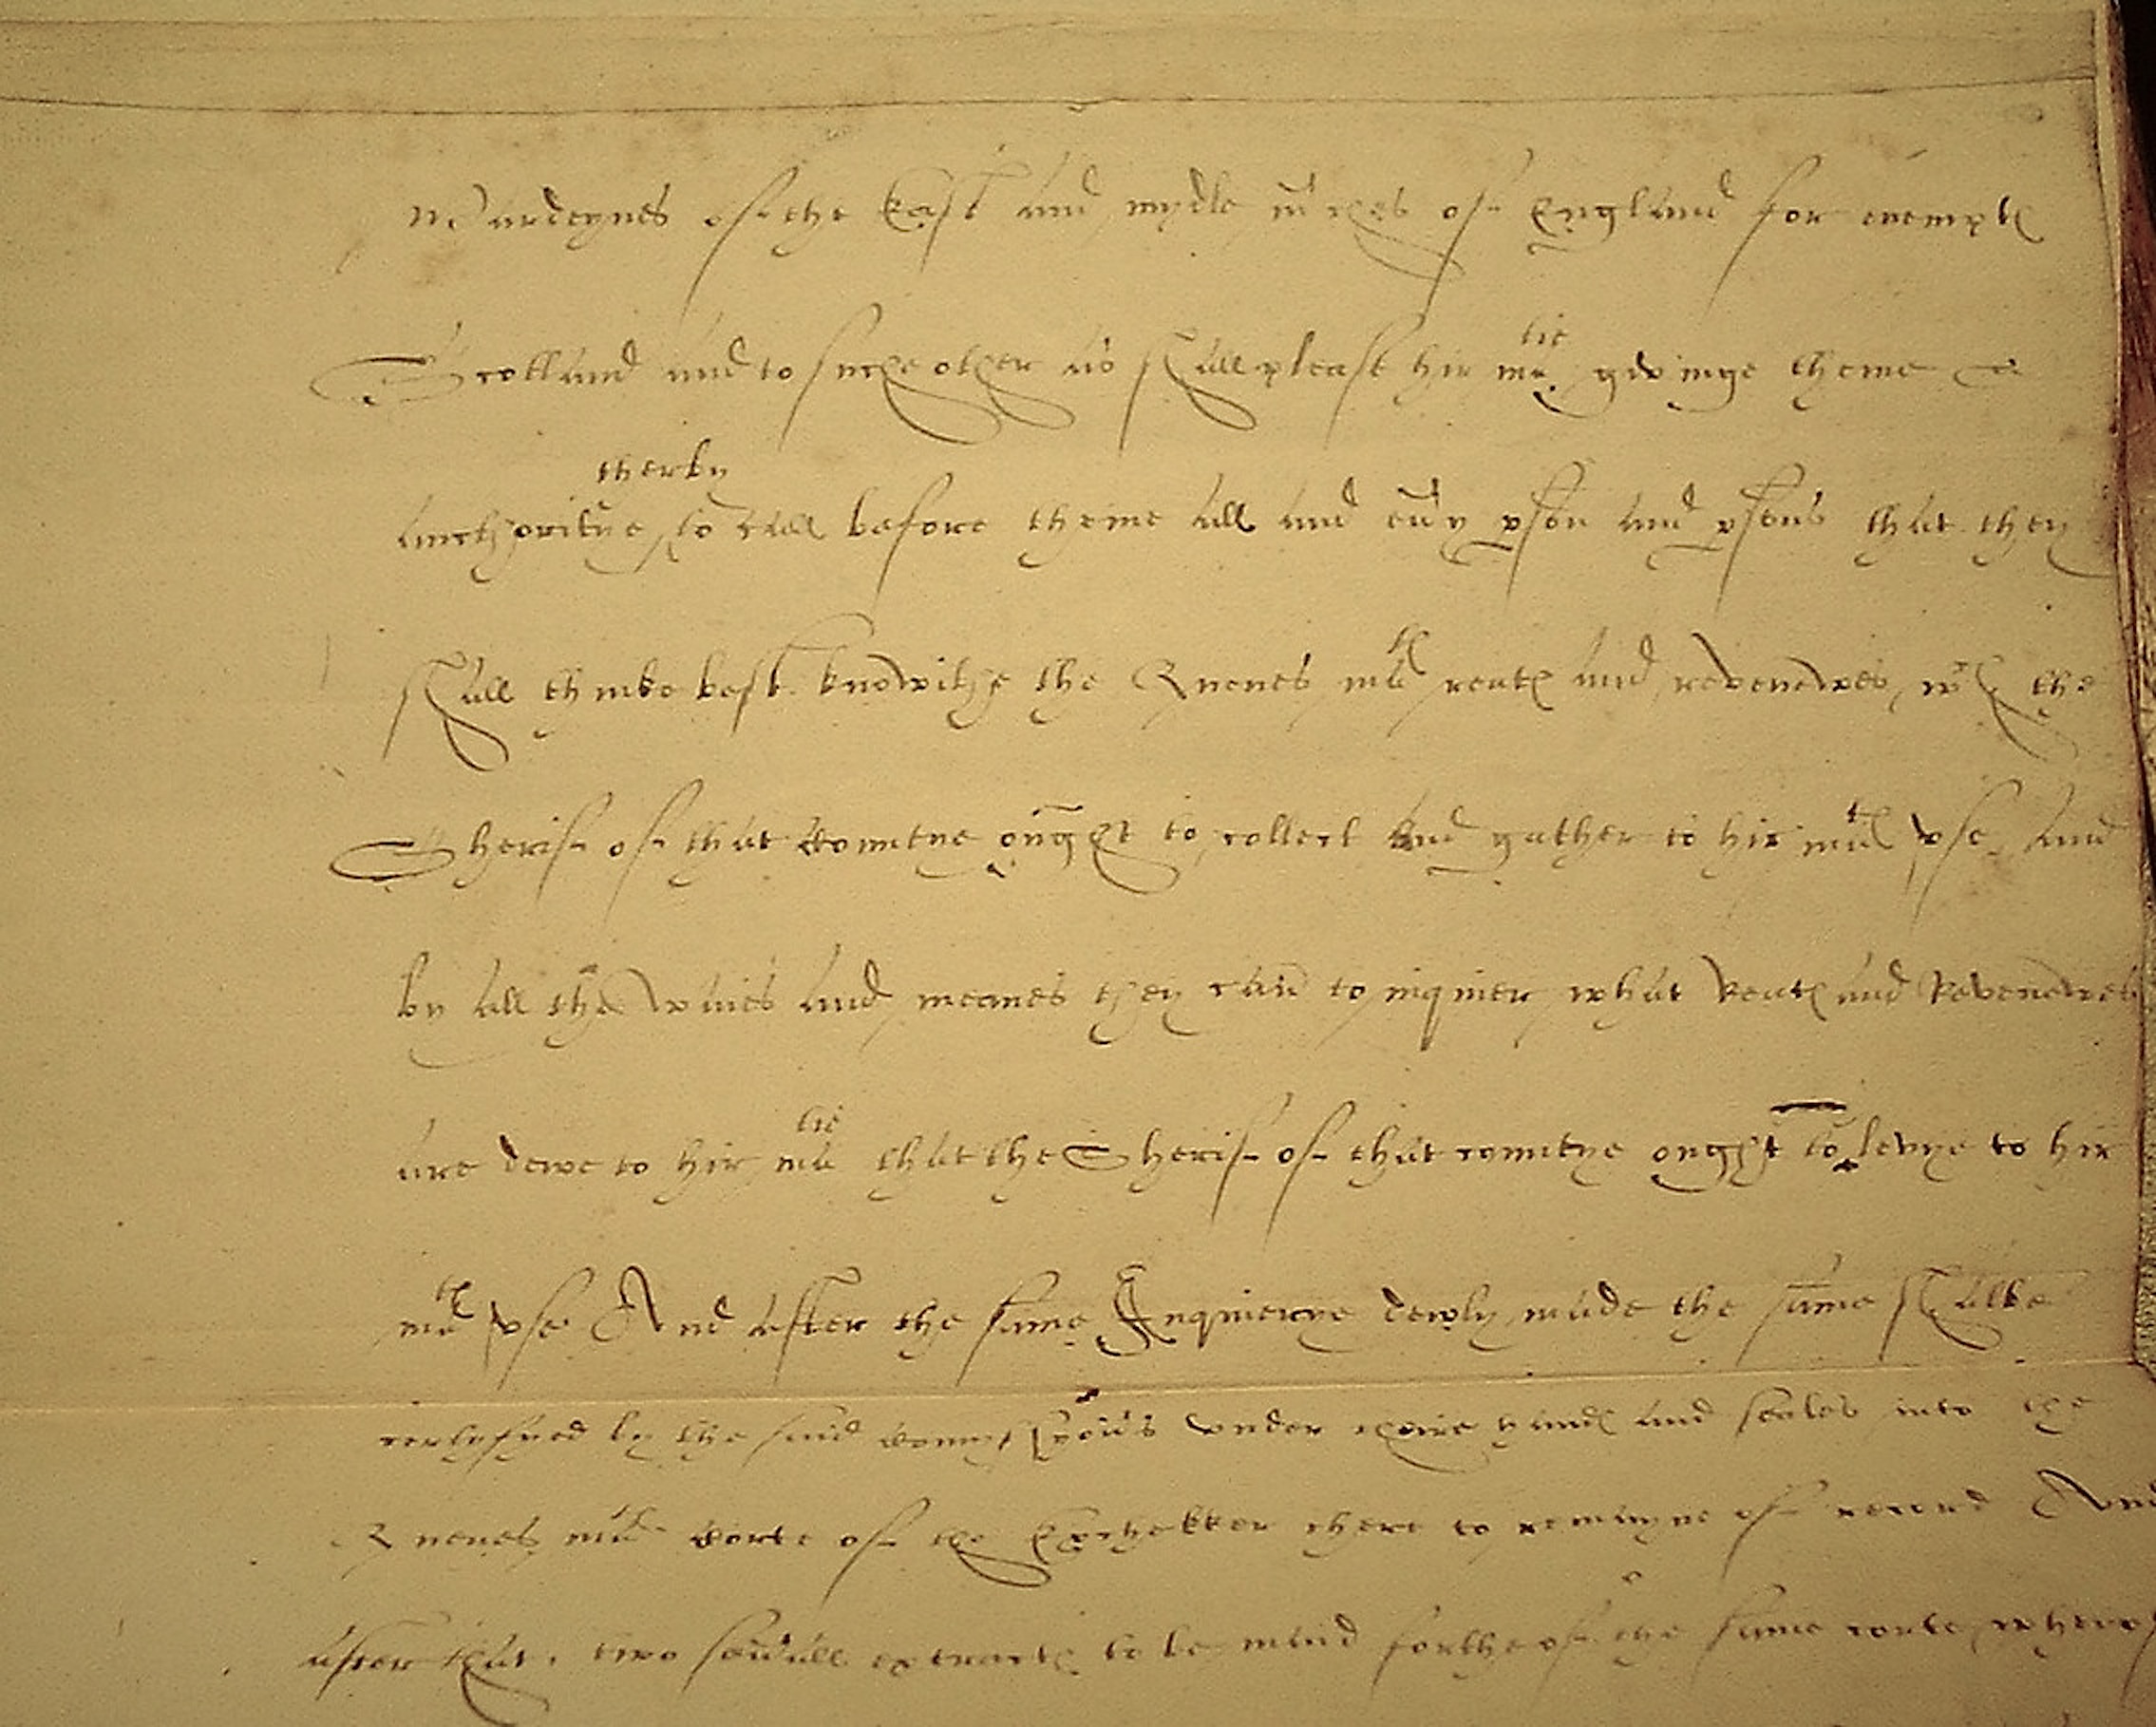 Wardeynes of the East and mydle m'ches of England for anempst
Scottland and to suche other as shall please hir ma tie gevinge theme
aucthoritye therby to call before theme all and eu'y p'son and p'sons that they
shall thinke best knowithe the Quenes ma tes rentes and revenewes, w ch the
Sherif of that Countye ought to collect and gather to hir ma tes vse and
by all the waies and meanes they can to inquier what Rentes and Revenewes
are dewe to hir ma tie that the Sherif of that countye ought to levye to hir
ma tes vse And after the same Inquierye dewly made the same shalbe
certyfyed by the said Comyssyon's vnder there handes and seales into the
Quenes ma tes Corte of the Exchekker there to remayne of record And
after that, two seu'all extractes to be maid forthe of the same corte, wherof